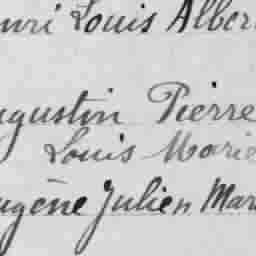 nri Louis Alber
ugustin Pierre
Louis Marie
ugène Julien Mar